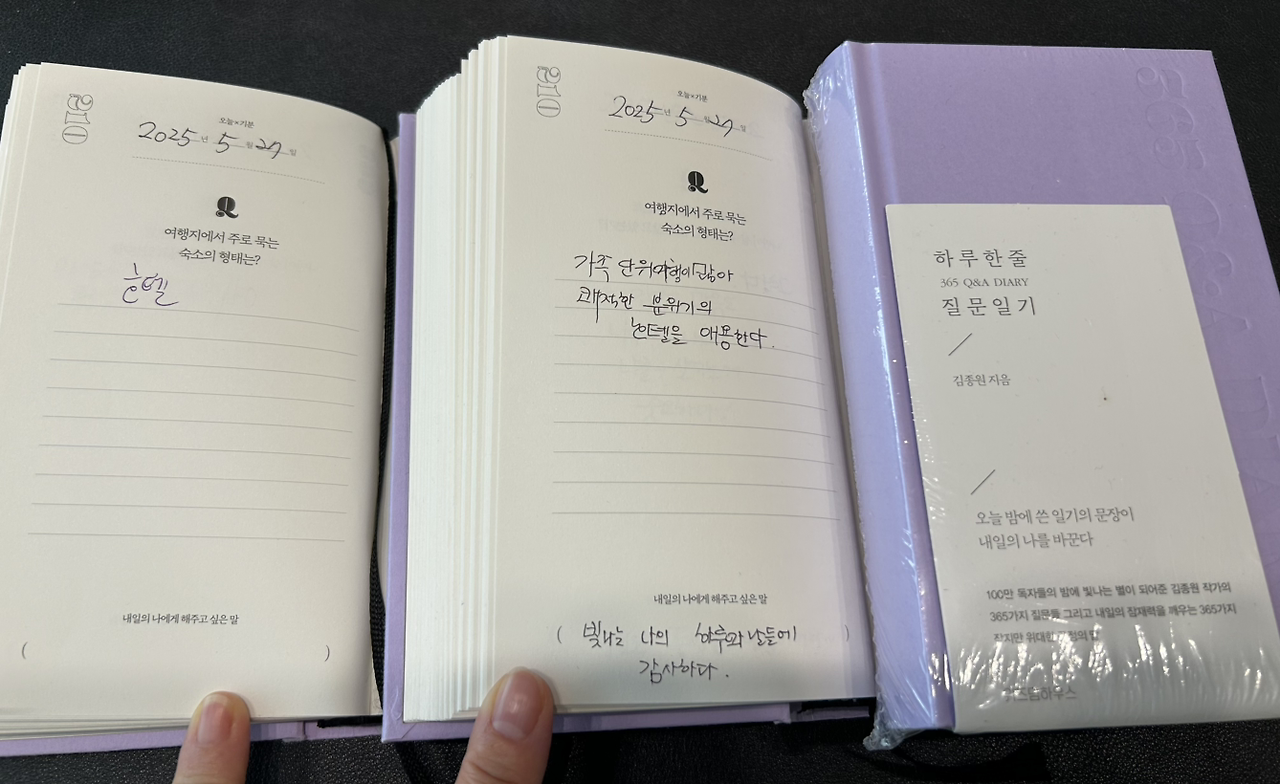 210
오늘의 기분
2025년 5월 27일
Q
여행지에서 주로 묵는
숙소의 형태는?
호텔
내일의 나에게 해주고 싶은 말
( )
210
오늘의 기분
2025년 5월 27일
Q
여행지에서 주로 묵는
숙소의 형태는?
가족 단위여행이 많아
쾌적한 분위기의
호텔을 애용한다.
내일의 나에게 해주고 싶은 말
( 빛나는 나의 하루와 날들에 )
감사하다.
365 Q&A DIARY
하루 한 줄
365 Q&A DIARY
질문 일기
김종원 지음
오늘 밤에 쓴 일기의 문장이
내일의 나를 바꾼다
100만 독자들의 밤에 빛나는 별이 되어준 김종원 작가의
365가지 질문들 그리고 내일의 잠재력을 깨우는 365가지
작지만 위대한 말